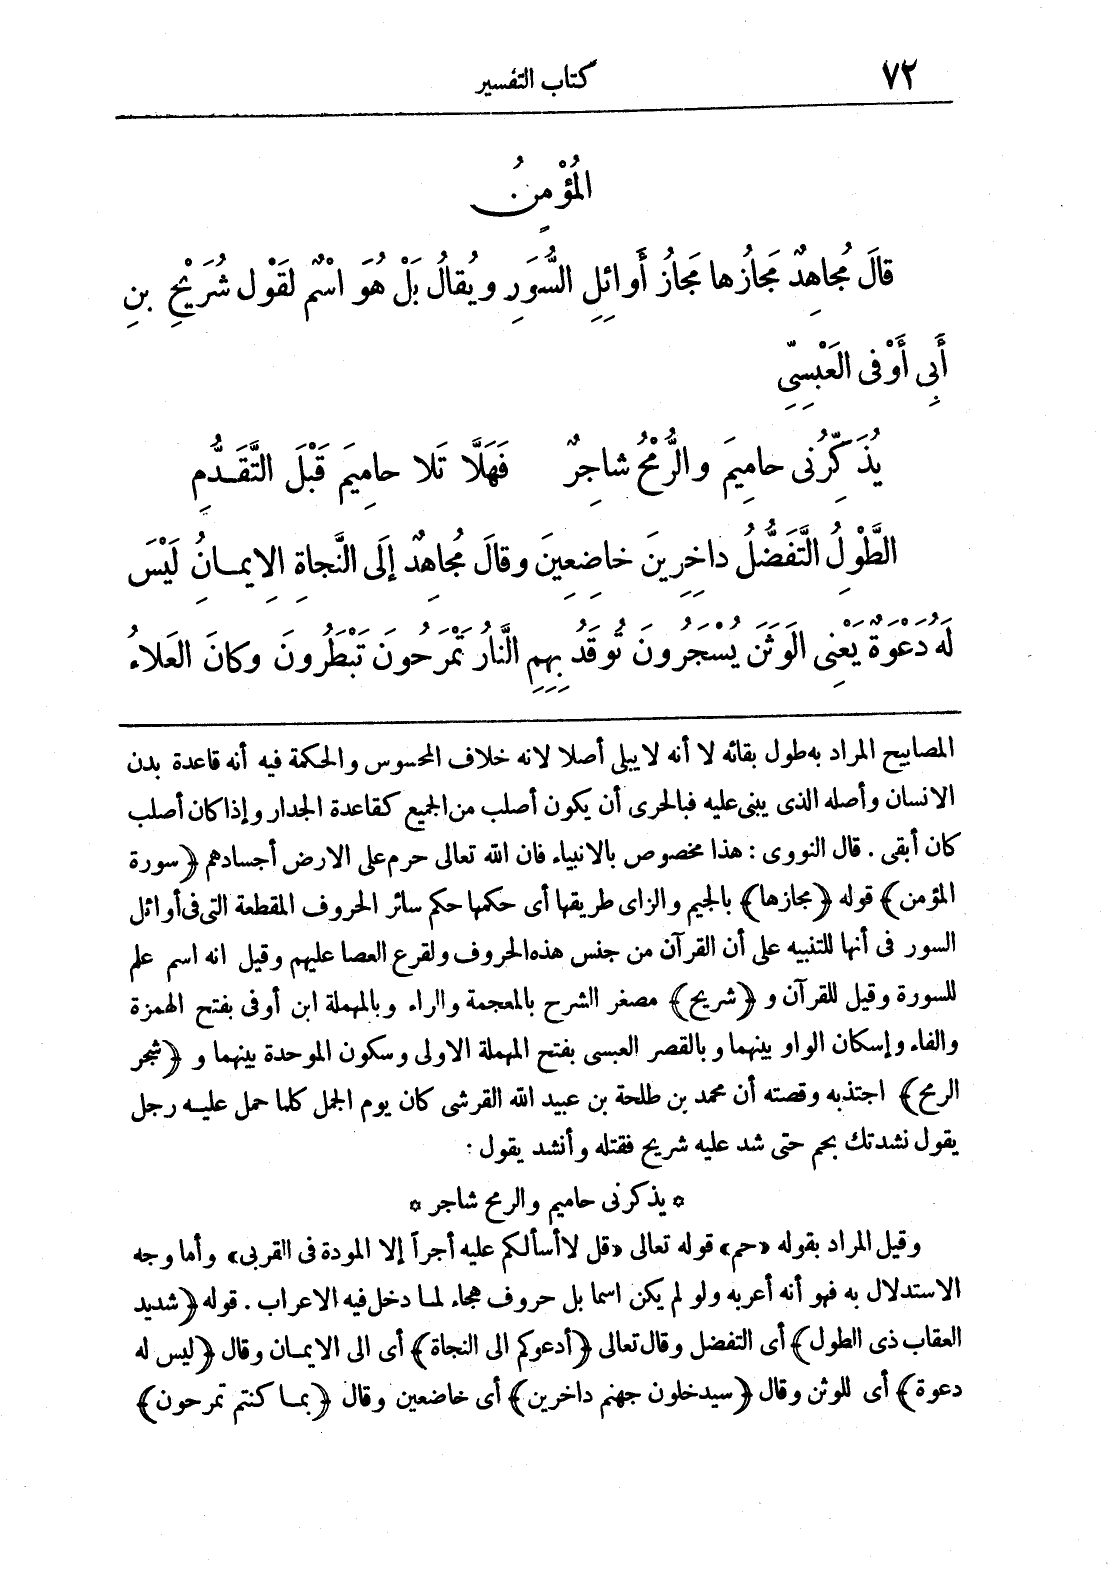 ٧٢
كتاب التفسير
المُؤْمِنُ
قالَ مُجاهِدٌ مَجازُها مَجازُ أَوائِلِ السُّوَرِ ويُقالُ بَلْ هُوَ اسْمٌ لقَوْل شُرَيْحِ بنِ
أَبِي أَوْفى العَبْسِيِّ
يُذَكِّرُنى حامِيمَ والرُّمْحُ شاجِرٌ فَهَلَّا تَلا حامِيمَ قَبْلَ التَّقَدُّمِ
الطَّوْلِ التَّفَضُّلُ داخِرِينَ خاضِعِينَ وقالَ مُجاهِدٌ إلَى النَّجاةِ الِايمانُ لَيْسَ
لَهُ دَعْوَةٌ يَعْنِى الوَثَنَ يُسْجَرُونَ تُوقَدُ بِهِمِ النَّارُ تَمْرَحُونَ تَبْطَرُونَ وكانَ العَلاءُ
المصابيح المراد به طول بقائه لا أنه لا يبلى أصلا لانه خلاف المحسوس والحكمة فيه أنه قاعدة بدن
الانسان وأصله الذى يبنى عليه فبالحرى أن يكون أصلب من الجميع كقاعدة الجدار وإذا كان أصلب
كان أبقى . قال النووى : هذا مخصوص بالانبياء فان الله تعالى حرم على الارض أجسادهم ﴿سورة
المؤمن﴾ قوله ﴿مجازها﴾ بالجيم والزاى طريقها أى حكمها حكم سائر الحروف المقطعة التى فى أوائل
السور فى أنها للتنبيه على أن القرآن من جنس هذه الحروف ولقرع العصا عليهم وقيل انه اسم علم
للسورة وقيل للقرآن و ﴿شريح﴾ مصغر الشرح بالمعجمة والراء وبالمهملة ابن أوفى بفتح الهمزة
والفاء وإسكان الواو بينهما وبالقصر العبسى بفتح المهملة الاولى وسكون الموحدة بينهما و ﴿شجر
الرمح﴾ اجتذبه وقصته أن محمد بن طلحة بن عبيد الله القرشى كان يوم الجمل كلما حمل عليه رجل
يقول نشدتك بحم حتى شد عليه شريح فقتله وأنشد يقول :
* يذكرنى حاميم والرمح شاجر *
وقيل المراد بقوله «حم» قوله تعالى «قل لا أسألكم عليه أجراً إلا المودة فى القربى» وأما وجه
الاستدلال به فهو أنه أعربه ولو لم يكن اسما بل حروف هجاء لما دخل فيه الاعراب . قوله ﴿شديد
العقاب ذى الطول﴾ أى التفضل وقال تعالى ﴿أدعوكم الى النجاة﴾ أى الى الايمان وقال ﴿ليس له
دعوة﴾ أى للوثن وقال ﴿سيدخلون جهنم داخرين﴾ أى خاضعين وقال ﴿بما كنتم تمرحون﴾